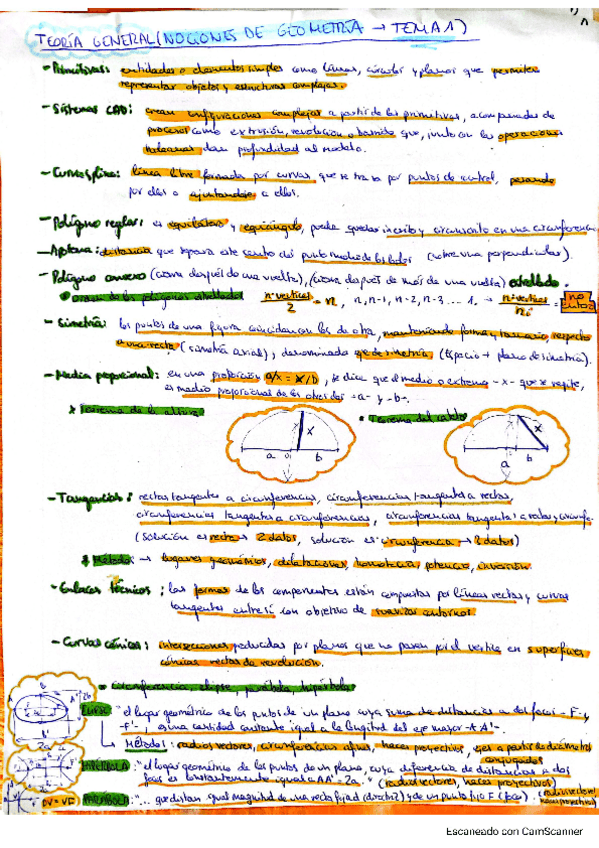 TEORÍA GENERAL (NOCIONES DE GEOMETRÍA → TEMA 1)
- Primitivas: entidades o elementos simples como líneas, círculos y planos que permiten
representar objetos y estructuras complejas.
- Sistemas CAD: crean configuraciones complejas a partir de las primitivas, acompañadas de
procesos como extrusión, revolución o barrido que, junto con las operaciones
booleanas dan profundidad al modelo.
- Curva spline: línea libre formada por curvas, que se traza por puntos de control, pasando
por ellos o ajustándose a ellos.
- Polígono regular: es equilátero y equiángulo, puede quedar inscrito y circunscrito en una circunferencia
- Apotema: distancia que separa este centro del punto medio de los lados (sobre una perpendicular).
- Polígono convexo (cierra después de una vuelta), (cierra después de más de una vuelta) estrellado.
de los polígonos estrellados nº vértices / 2 = n, n, n-1, n-2, n-3 ... 1, → nº vértices / ni = no entero
- Simetría: los puntos de una figura coinciden con los de otra, manteniendo forma y tamaño, respecto
a una recta (simetría axial), denominada eje de simetría, (Espacio → plano de simetría).
- Media proporcional: en una proporción a/x = x/b, se dice que el medio o extremo - x - que se repite,
es medio proporcional de los otros dos - a - y - b -.
* Teorema de la altura
* Teorema del cateto
x a b
x a b
- Tangencias: rectas tangentes a circunferencias, circunferencias tangentes a rectas,
circunferencias tangentes a circunferencias, circunferencias tangentes a rectas y circunfe.
(solución es recta → 2 datos, solución es circunferencia → 3 datos)
* Métodos → lugares geométricos, dilataciones, homotecia, potencia, inversión.
- Enlaces técnicos: las formas de los componentes están compuestas por líneas rectas y curvas
tangentes entre sí con objetivo de suavizar contornos.
- Curvas cónicas: intersecciones producidas por planos que no pasen por el vértice en superficies
cónicas rectas de revolución.
* circunferencia, elipse, parábola, hipérbola
ELIPSE "el lugar geométrico de los puntos de un plano cuya suma de distancias a dos focos - F - y
- F' -, es una cantidad constante igual a la longitud del eje mayor - AA' -.
Métodos: radios vectores, circunferencias afines, haces proyectivos, ejes a partir de diámetros
conjugados
HIPÉRBOLA: "el lugar geométrico de los puntos de un plano, cuya diferencia de distancias a dos
focos es constantemente igual a AA' = 2a." (radios vectores, haces proyectivos)
DV = VF PARÁBOLA: "... que distan igual magnitud de una recta fija d (directriz) y de un punto fijo F (foco). (radios vectores, haces proyectivos)
Escaneado con CamScanner